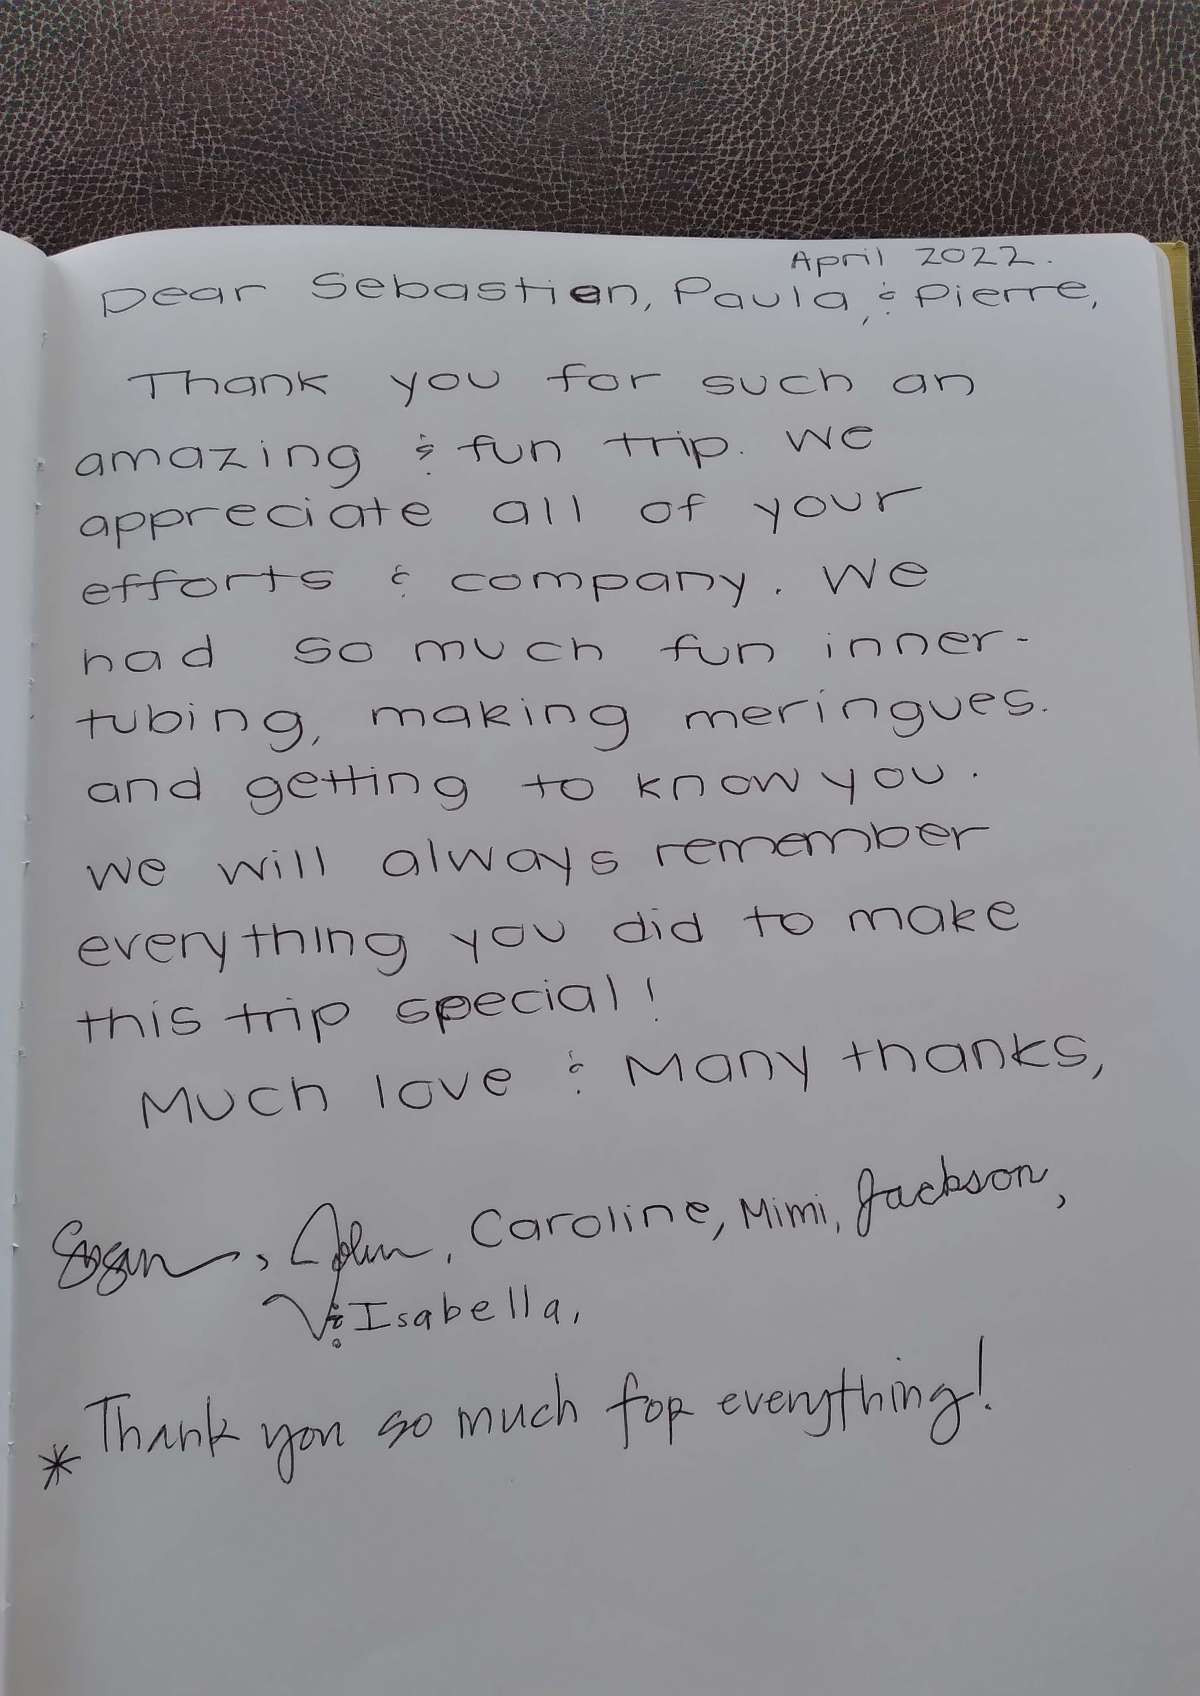 April 2022.
Dear Sebastien, Paula, & Pierre,
Thank you for such an
amazing & fun trip. We
appreciate all of your
efforts & company. We
had so much fun inner-
tubing, making meringues.
and getting to know you.
we will always remember
everything you did to make
this trip special!
Much love & Many thanks,
Susan, John, Caroline, Mimi, Jackson,
& Isabella,
* Thank you so much for everything!